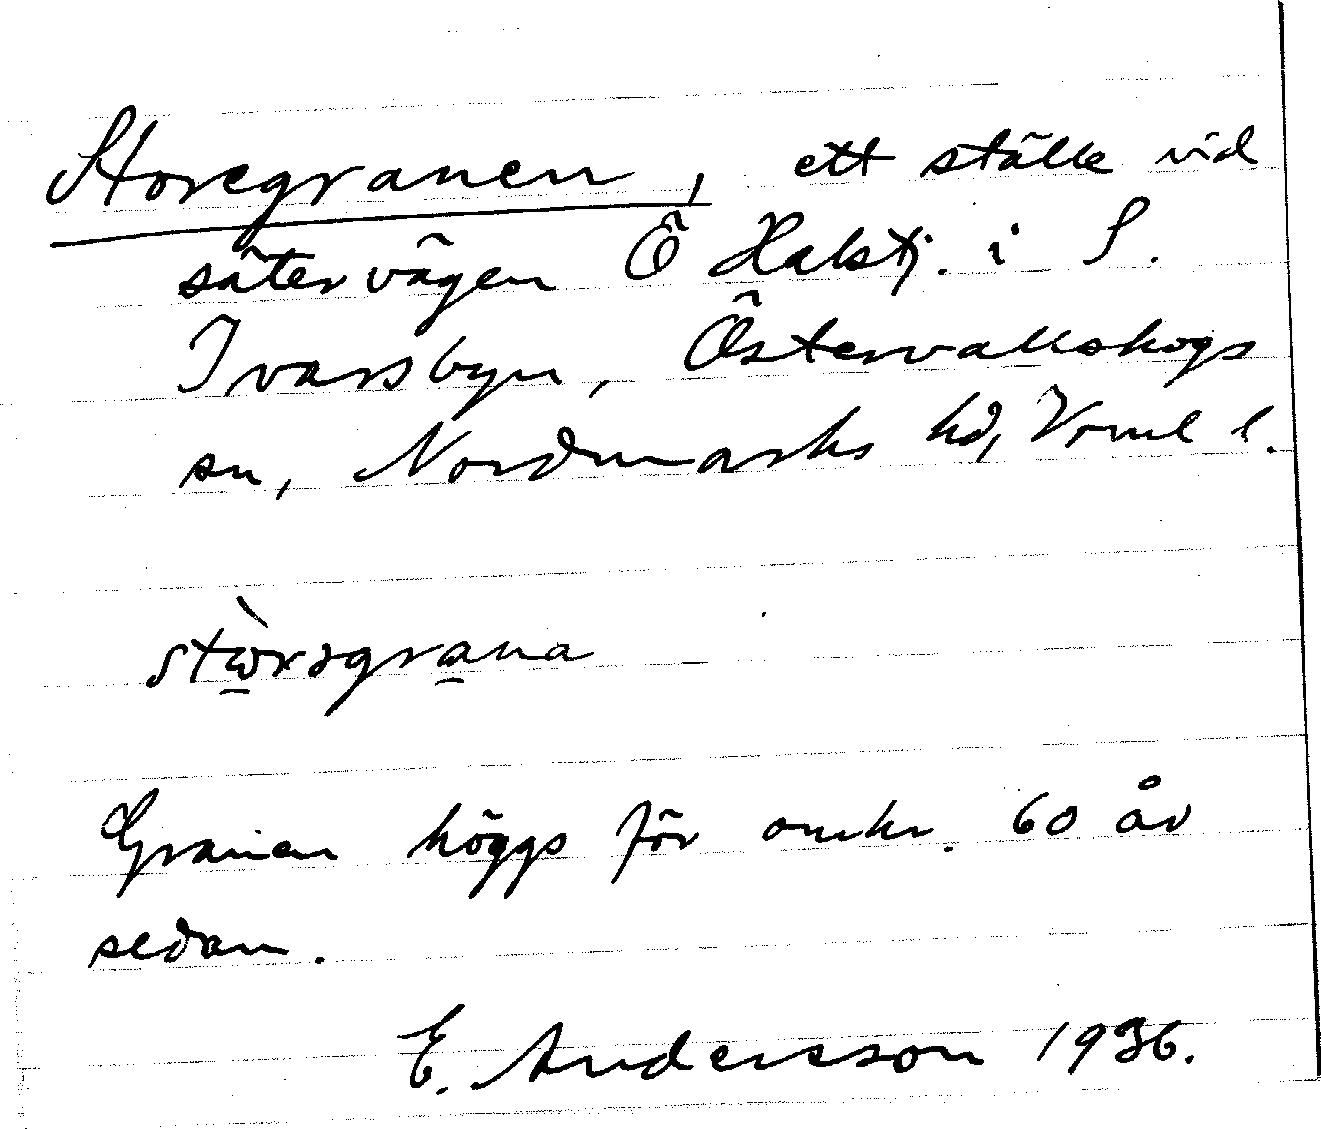 Storegranen, ett ställe vid
sätervägen Ö Halstj. i S.
Ivarsbyn, Östervallskogs
sn, Nordmarks hd, Vrml l.
stὼ̱rəgra̱na
Granen höggs för omkr. 60 år
sedan.
E. Andersson 1936.